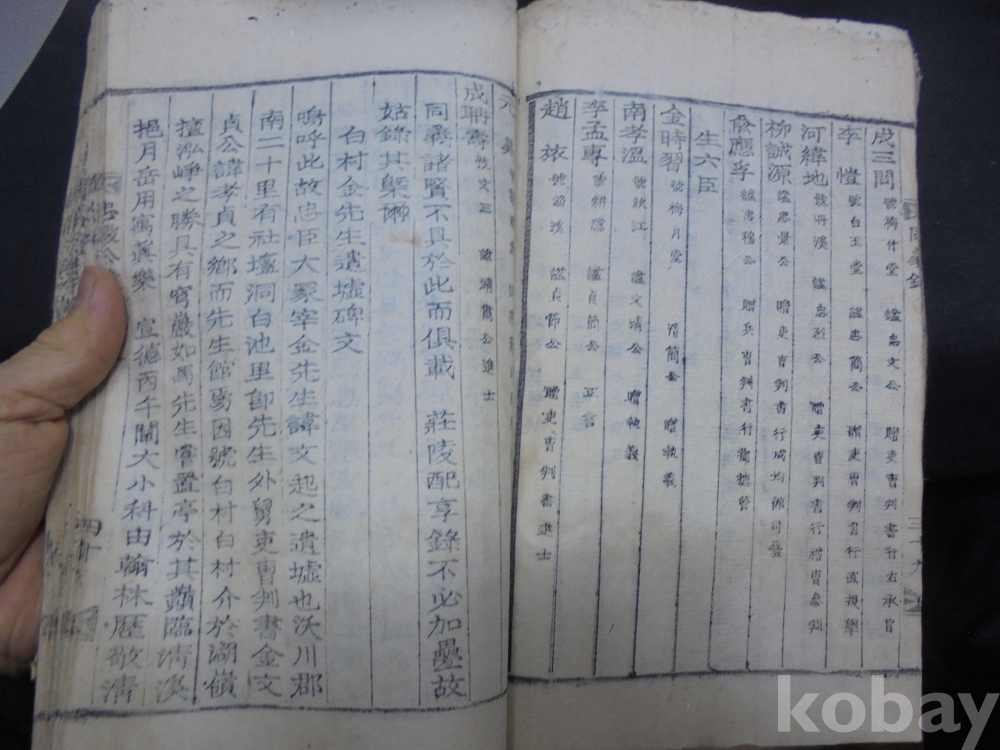 成三問 號梅竹堂 諡忠文公 贈吏曹判書行右承旨
李愷 號白玉堂 諡忠簡公 贈吏曹判書行直提學
河緯地 號丹溪 諡忠烈公 贈吏曹判書行禮曹參判
柳誠源 諡忠景公 贈吏曹判書行成均館司藝
兪應孚 諡忠穆公 贈兵曹判書行
生六臣
金時習 號梅月堂 清簡公 贈執義
南孝溫 號秋江 諡文靖公 贈執義
李孟專 號耕隱 諡貞簡公 正言
趙旅 號漁溪 諡貞節公 贈吏曹判書進士
成聃壽 號文斗 諡靖肅公進士
同義諸賢不具於此而俱載 莊陵配享錄不必加疊故
姑錄其槩爾
白村金先生遺墟碑文
嗚呼此故忠臣大冢宰金先生諱文起之遺墟也沃川郡
南二十里有社壇洞白池里卽先生外舅吏曹判書金文
貞公諱孝貞之鄉而先生館焉因號白村白村介於湖嶺
擅泓崢之勝具有窞巖如馬先生嘗置亭於其巔臨清溪
挹月岳用寓眞樂 宣德丙午闡大小科由翰林歷敭清
三十九
四十
kobay